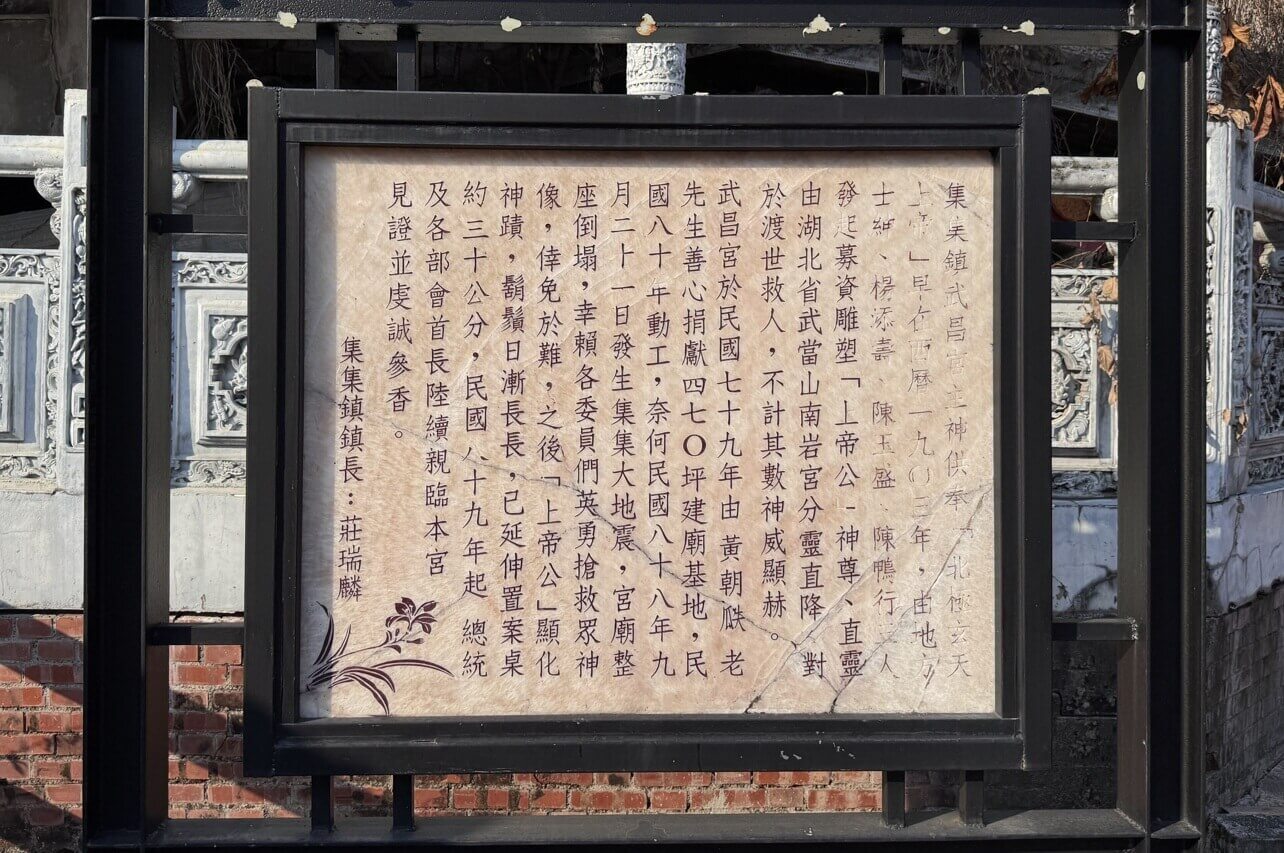 集集鎮武昌宮主神供奉「北極玄天
上帝」早在西曆一九〇三年，由地方
士紳、楊添壽、陳玉盛、陳鴨行人
發起募資雕塑「上帝公-神尊、直靈
由湖北省武當山南岩宮分靈直降 對
於渡世救人，不計其數神威顯赫。
武昌宮於民國七十九年由 黃朝 老
先生善心捐獻四七〇坪建廟基地，民
國八十年動工，奈何民國八十八年九
月二十一日發生集集大地震，宮廟整
座倒塌，幸賴各委員們英勇搶救眾神
像，倖免於難，之後「上帝公」顯化
神蹟，鬍鬚日漸長長，已延伸置案桌
約三十公分，民國八十九年起 總統
及各部會首長陸續親臨本宮
見證並虔誠參香。
集集鎮鎮長：莊瑞麟